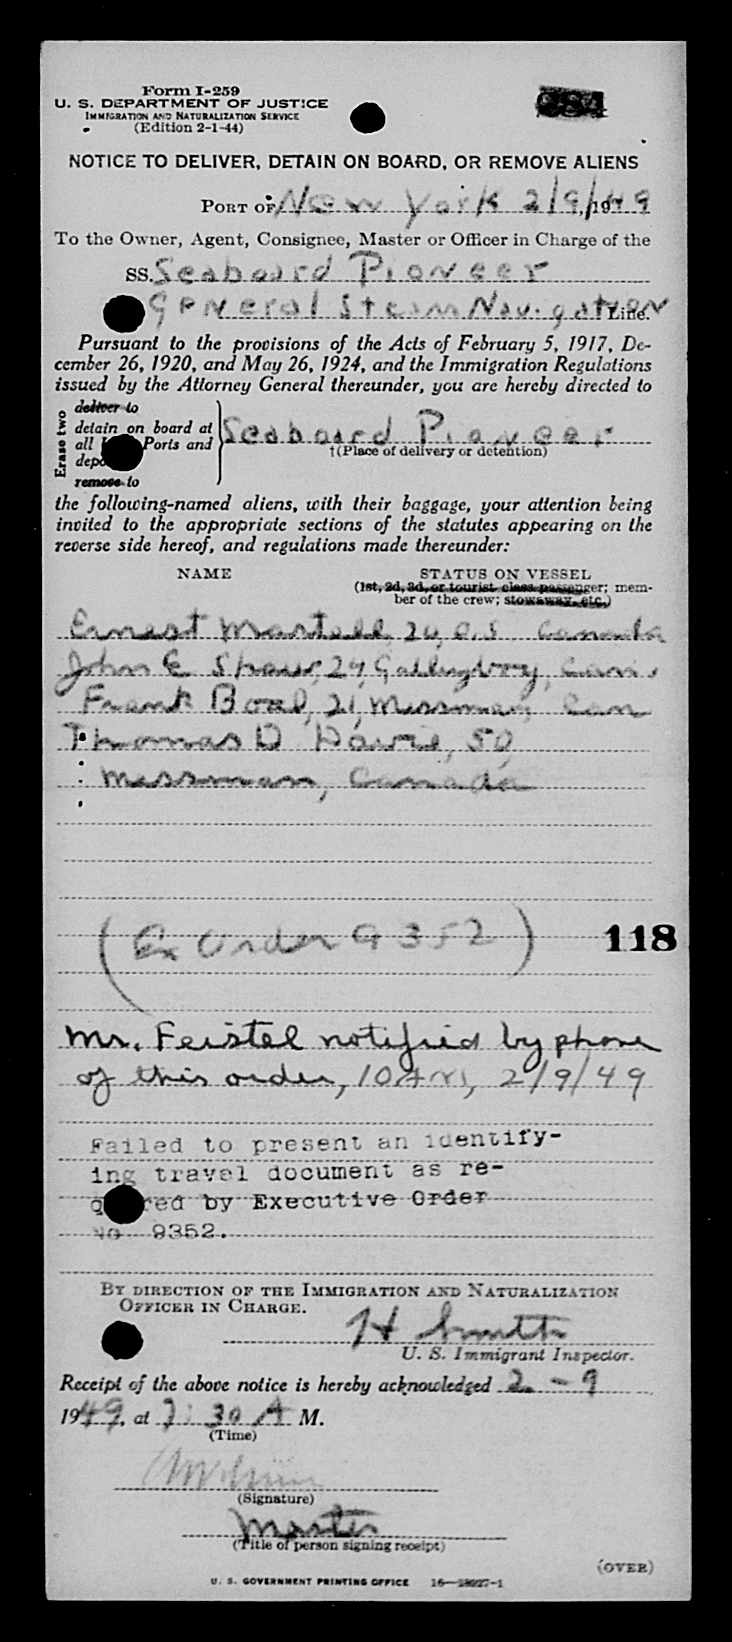 Form I-259
U. S. DEPARTMENT OF JUSTICE
IMMIGRATION AND NATURALIZATION SERVICE
(Edition 2-1-44)
NOTICE TO DELIVER, DETAIN ON BOARD, OR REMOVE ALIENS
PORT OF New York 2/9/, 1949
To the Owner, Agent, Consignee, Master or Officer in Charge of the
SS. Seaboard Pioneer
General Steam Navigation Line.
Pursuant to the provisions of the Acts of February 5, 1917, De-
cember 26, 1920, and May 26, 1924, and the Immigration Regulations
issued by the Attorney General thereunder, you are hereby directed to
Erase two
deliver to
detain on board at
all Ports and
remove to
Seaboard Pioneer
†(Place of delivery or detention)
the following-named aliens, with their baggage, your attention being
invited to the appropriate sections of the statutes appearing on the
reverse side hereof, and regulations made thereunder:
NAME STATUS ON VESSEL
(1st, 2d, 3d, or tourist class passenger; mem-
ber of the crew; stowaway, etc.)
Ernest Martell, 20, O.S. Canada
John E 24, Galleyboy, Can.
Frank Boal, 21, Messman, Can
Thomas D Davie, 50,
Messman, Canada
(Ex Order 9352)
118
Mr. Feistel notified by phone
of this order, 10 AM, 2/9/49
Failed to present an identify-
ing travel document as re-
by Executive Order
No 9352.
BY DIRECTION OF THE IMMIGRATION AND NATURALIZATION
OFFICER IN CHARGE.
H Smith
U. S. Immigrant Inspector.
Receipt of the above notice is hereby acknowledged 2 - 9
1949, at 30 A M.
(Time)
(Signature)
Master
(Title of person signing receipt)
(OVER)
U. S. GOVERNMENT PRINTING OFFICE